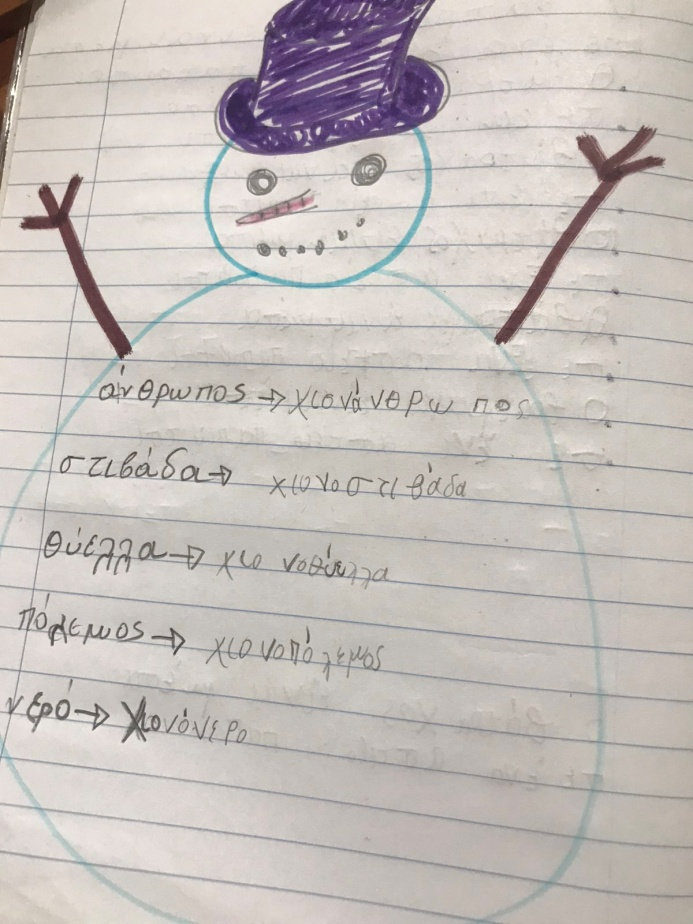 άνθρωπος → χιονάνθρωπος
στιβάδα → χιονοστιβάδα
θύελλα → χιονοθύελλα
πόλεμος → χιονοπόλεμος
νερό → χιονόνερο